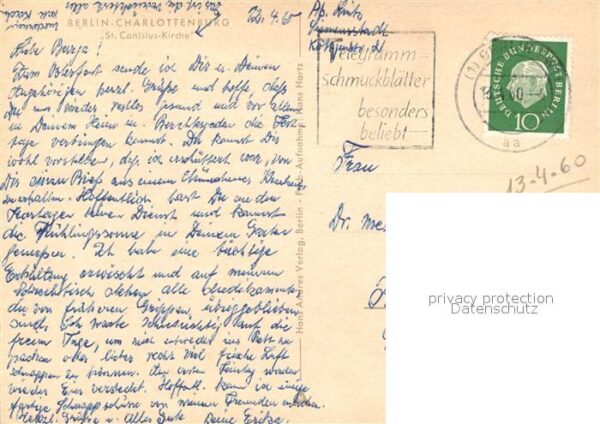 BERLIN-CHARLOTTENBURG
"St. Canisius-Kirche"
Liebe Burga!
Zum Osterfest sende ich Dir u. Deinen
Angehörigen herzl. Grüße und hoffe, daß
Du uns wieder gesund und vor allem
in Deinem Heim in Berchtesgaden die Fest-
tage verbringen kannst. Du kannst Dir
wohl vorstellen, daß ich erschüttert war, von
Dir einen Brief aus einem Münchener
zu erhalten. Hoffentlich hast Du an den
Feiertagen keinen Dienst und kannst
die Frühlingssonne in Deinem Garten
genießen. Ich habe eine tüchtige
Erkältung erwischt und auf meinem
Schreibtisch stehen alle Medikamente
die von früheren Grippen übriggeblieben
sind. Ich warte sehnsüchtig auf die
freien Tage, um mich entweder ins Bett zu
packen oder lieber recht viel frische Luft
schnappen zu können. Am ersten Feiertag werden
wieder Eier versteckt. Hoffentl. kann ich einige
Schnappschüsse von meinen Freunden machen.
Herzl. Grüße u. Alles Gute Deine Erika.
Hans Andres Verlag, Berlin - Farb-Aufnahme: Hans Hartz
Telegramm-
schmuckblätter
besonders
beliebt
DEUTSCHE BUNDESPOST BERLIN
10
aa
13-4-60
Frau
Dr. me
privacy protection
Datenschutz